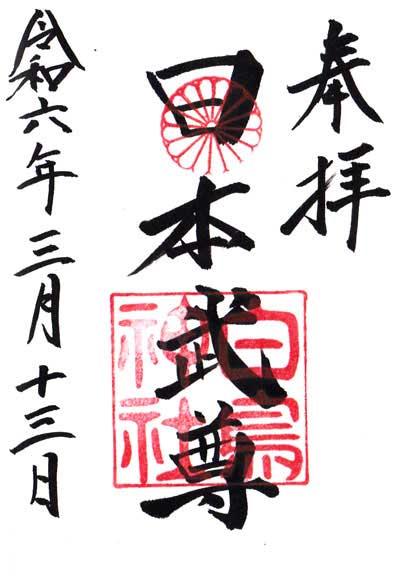 奉拝
日本武尊
白鳥神社
令和六年三月十三日